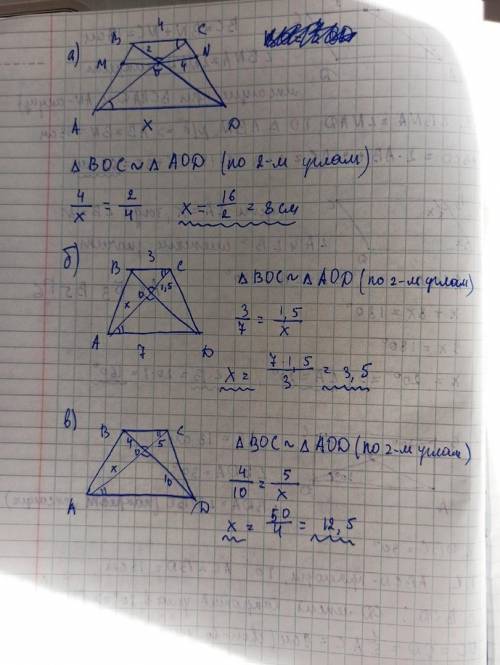 а)
4
B C
2
M O 4 N
A X D
△ BOC ~ △ AOD (по 2-м углам)
4/x = 2/4 x = 16/2 = 8 см
б)
3
B C
O 1,5
x
A D
7
△ BOC ~ △ AOD (по 2-м углам)
3/7 = 1,5/x
x = 7·1,5/3 = 3,5
в)
B C
4 O 5
x 10
A D
△ BOC ~ △ AOD (по 2-м углам)
4/10 = 5/x
x = 50/4 = 12,5